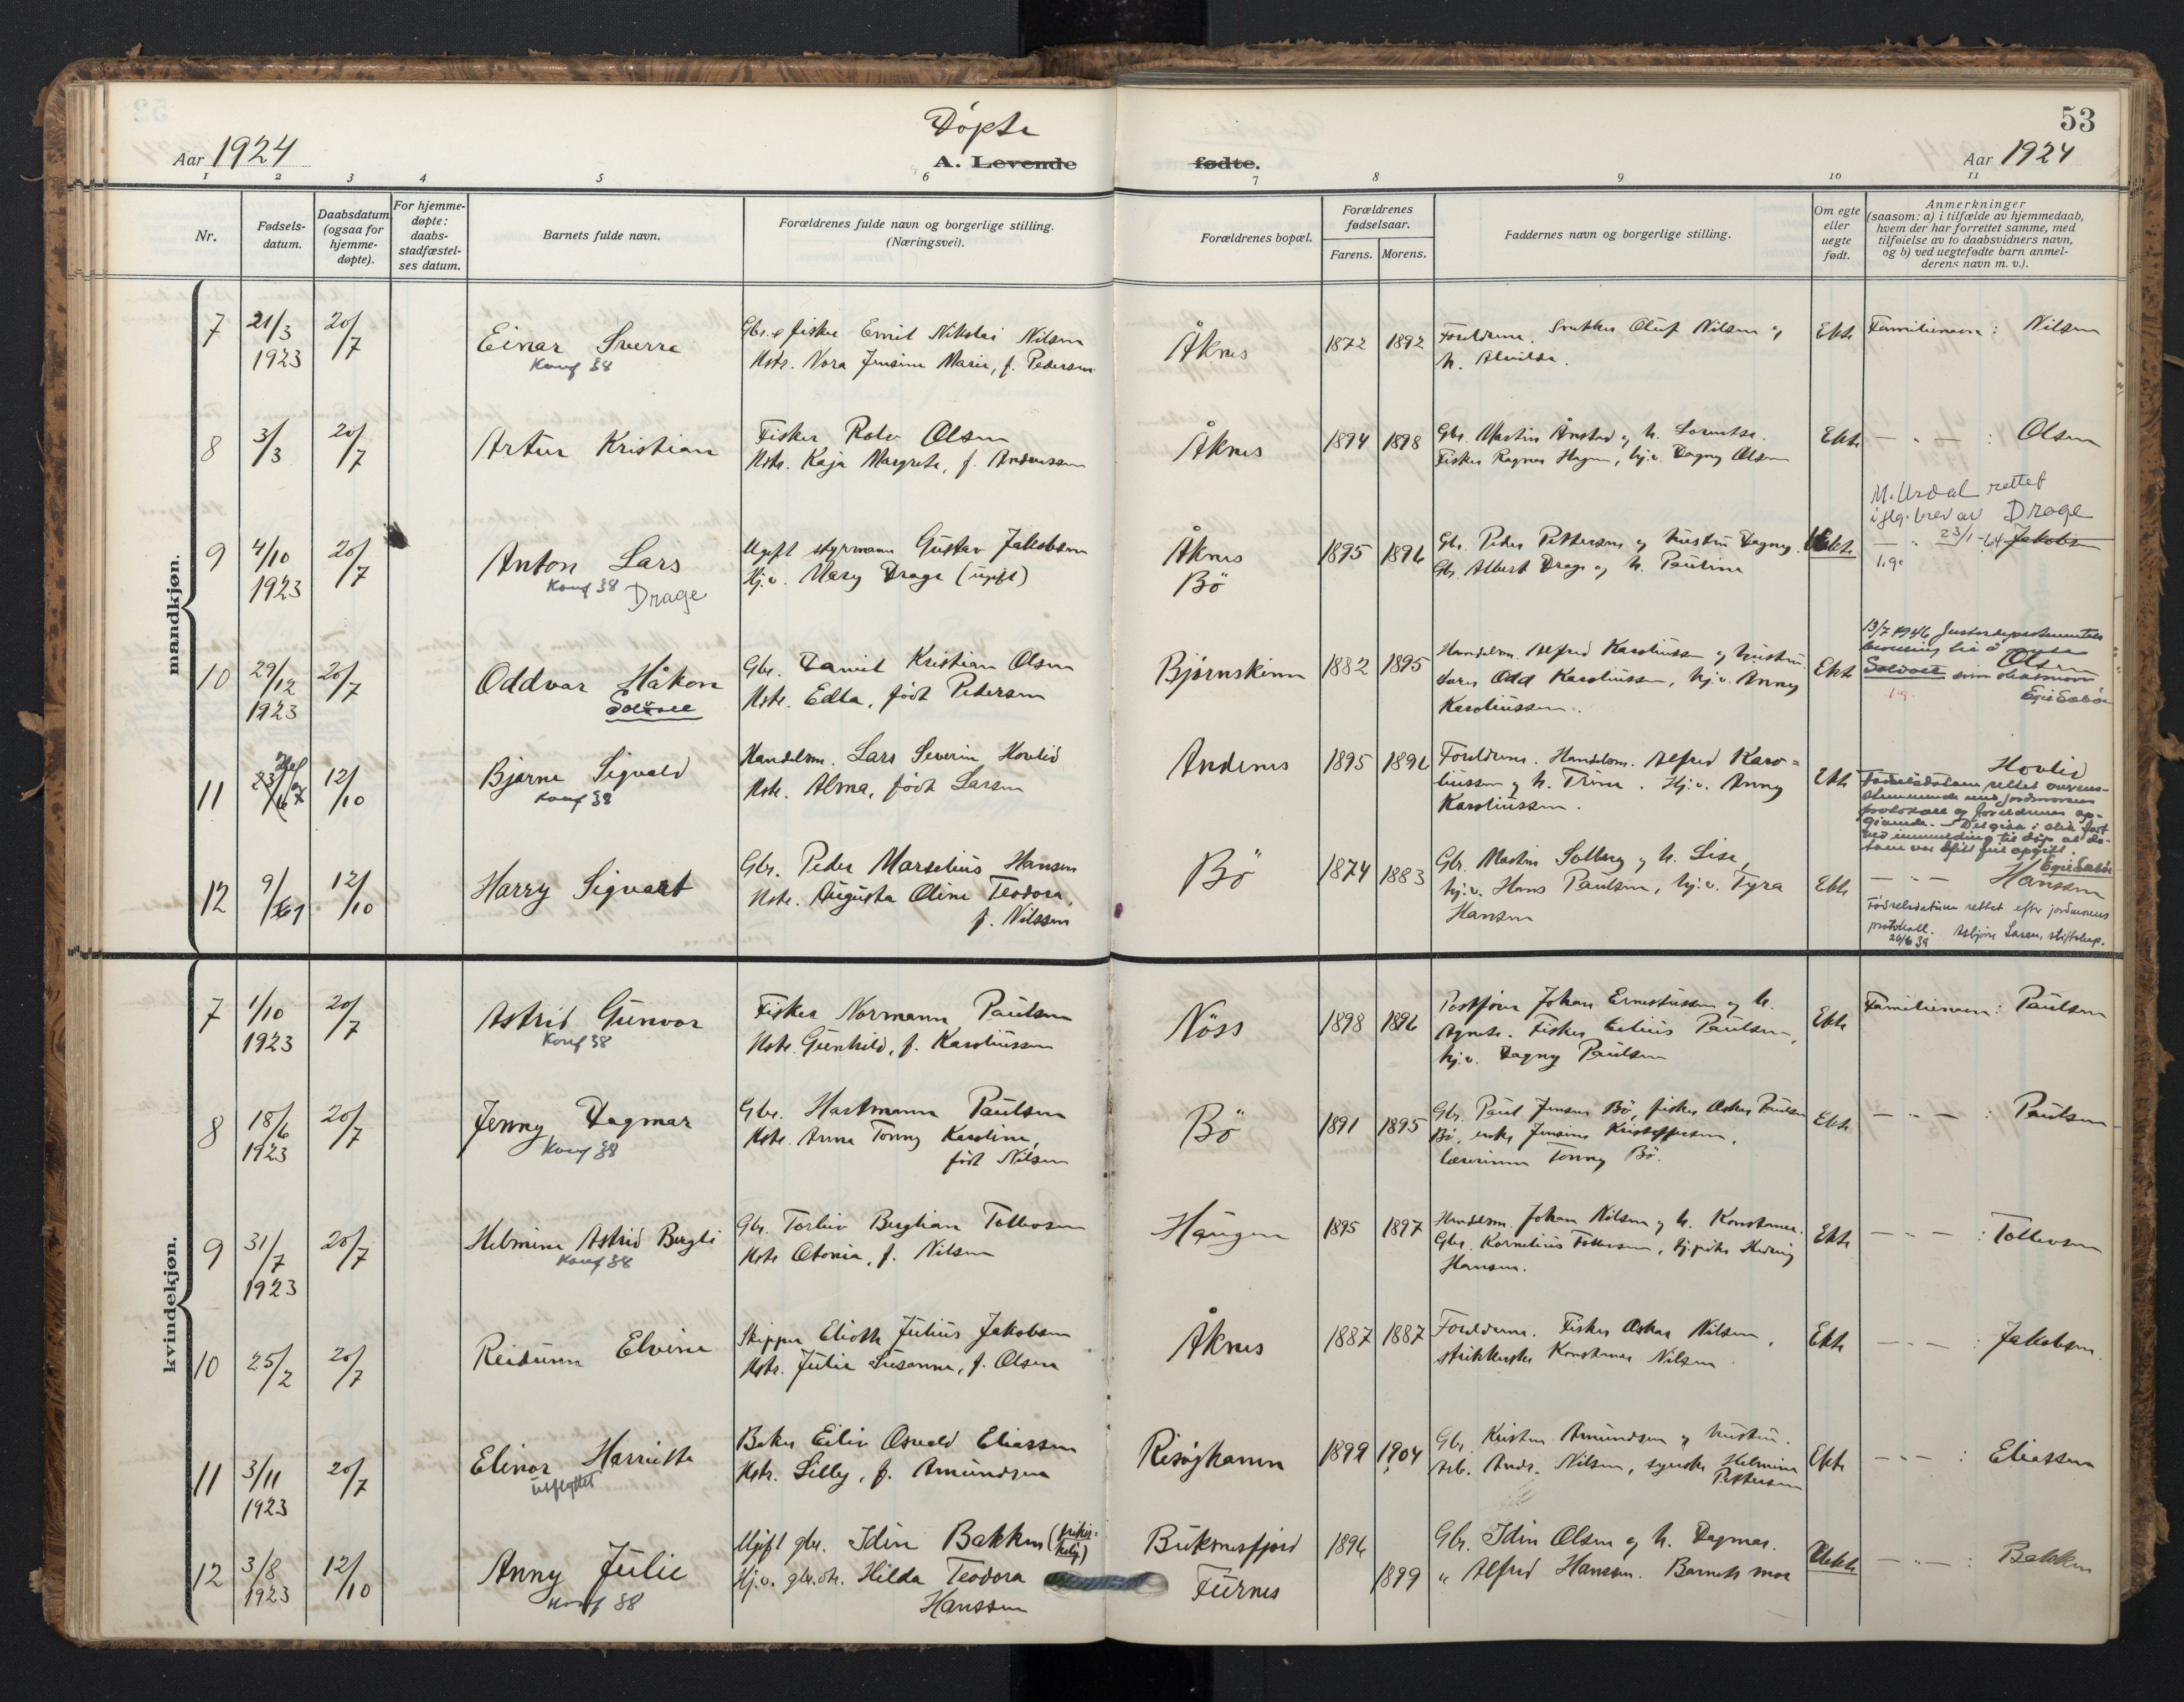 53
Aar 1924
Døpte
A. Levende fødte.
Aar 1924
1 2 3 4 5 6 7 8 9 10 11
Nr.
Fødsels-
datum.
Daabsdatum
(ogsaa for
hjemme-
døpte).
For hjemme-
døpte:
daabs-
stadfæstel-
ses datum.
Barnets fulde navn.
Forældrenes fulde navn og borgerlige stilling.
(Næringsvei).
Forældrenes bopæl.
Forældrenes
fødselsaar.
Farens. Morens.
Faddernes navn og borgerlige stilling.
Om egte
eller
uegte
født.
Anmerkninger
(saasom: a) i tilfælde av hjemmedaab,
hvem der har forrettet samme, med
tilføielse av to daabsvidners navn,
og b) ved uegtefødte barn anmel-
derens navn m. v.).
mandkjøn.
7 21/3 1923 20/7
Einar Sverre
Konf 38
Gbr. & fisker Emil Nikolai Nilsen
Hstr. Nora Jensine Marie, f. Pedersen
Åknes 1872 1892
Foreldrene. Snekker Oluf Nilsen og
h. Alvilde.
Ekte
Familienavn: Nilsen
8 3/3 20/7
Artur Kristian
Fisker Rolv Olsen
Hstr. Kaja Margrete, f. Andreassen
Åknes 1894 1898
Gbr. Martin Ånstad og h. Lorentse.
Fisker Ragnar Hagen, hj.v. Dagny Olsen
Ekte
— " — : Olsen
9 4/10 1923 20/7
Anton Lars
Konf 38 Drage
Ugift styrmann Gustav Jakobsen
Hj.v. Mary Drage (ugift)
Åknes
Bö
1895 1896
Gbr. Peder Pettersen og hustru Dagny.
Gbr. Albert Drage og h. Pauline
Uekte
M. Urdal rettet
iflg. brev av Drage
— " 23/1-64 Jakobsen
1.g.
10 29/12 1923 20/7
Oddvar Håkon
Solvoll
Gbr. Daniel Kristian Olsen
Hstr. Edla, født Pedersen
Bjørnskinn 1882 1895
Handelsm. Alfred Karoliussen og hustru.
Lars Odd Karoliussen, hj.v. Anny
Karoliussen.
Ekte
13/7 1946 Justisdepartementets
bevilling til å
Olsen
Solvoll som slektsnavn
1.g.
11 23/6 12/10
Bjarne Sigvald
Konf 38
Handelsm. Lars Severin Hovlid
Hstr. Alma, født Larsen
Andenes 1895 1896
Foreldrene. Handelsm. Alfred Karo=
liussen og h. Trine. Hj.v. Anny
Karoliussen.
Ekte
Hovlid
Fødselsdatum rettet overens-
stemmende med jordmorens
protokoll og foreldrenes op-
givende.
ved innmelding til dåp at da-
tum var blitt feil opgitt.
12 9/6 12/10
Harry Sigvart
Gbr. Peder Marselius Hansen
Hstr. Augusta Oline Teodora,
f. Nilssen
Bö 1874 1883
Gbr. Martin Solberg og h. Lise,
hj.v. Hans Paulsen, hj.v. Tyra
Hansen
Ekte
— " — Hanssen
Fødselsdatum rettet efter jordmorens
protokoll. Asbjørn Larsen, stiftskap.
26/6 39
kvindekjøn.
7 1/10 1923 20/7
Astrid Gunvor
Konf 38
Fisker Normann Paulsen
Hstr. Gunhild, f. Karoliussen
Nöss 1898 1896
Postfører Johan Ernestussen og h.
Agnete. Fisker Eilius Paulsen,
hj.v. Dagny Paulsen
Ekte
Familienavn: Paulsen
8 18/6 1923 20/7
Jenny Dagmar
Konf 38
Gbr. Hartmann Paulsen
Hstr. Anna Tonny Karoline,
født Nilsen
Bö 1891 1895
Gbr. Paul Jensen Bö, fisker Oskar Paulsen
Bö, enke Jensine Kristoffersen,
lærerinne Tonny Bö.
Ekte
— " — : Paulsen
9 31/7 1923 20/7
Helmine Astrid Bergli
Konf 38
Gbr. Torleiv Berglian Tollevsen
Hstr. Otonia, f. Nilsen
Haugen 1895 1897
Handelsm. Johan Nilsen og h. Konstanse.
Gbr. Kornelius Tollevsen, hj.pike Hedvig
Hansen.
Ekte
— " — : Tollevsen
10 25/2 20/7
Reidunn Elvine
Skipper Elioth Julius Jakobsen
Hstr. Julie Susanna, f. Olsen
Åknes 1887 1887
Foreldrene. Fisker Oskar Nilsen,
strikkerske Konstanse Nilsen.
Ekte
— " — : Jakobsen.
11 3/11 1923 20/7
Elinor Harriette
utflyttet
Baker Eiliv Osvald Eliassen
Hstr. Lilly, f. Amundsen
Risøyhamn 1899 1904
Gbr. Kristen Amundsen og hustru.
Arb. Andr. Nilsen, syerske Helmine
Pettersen
Ekte
— " — : Eliassen
12 3/8 1923 12/10
Anny Julie
Konf 38
Ugift gbr. Idin Bakken
Hj.v. gbr.dtr. Hilda Teodora
Hanssen
Buksnesfjord
Furnes
1896
1899
Gbr. Idin Olsen og h. Dagmar.
" Alfred Hanssen. Barnets mor
Uekte
— " — : Bakken